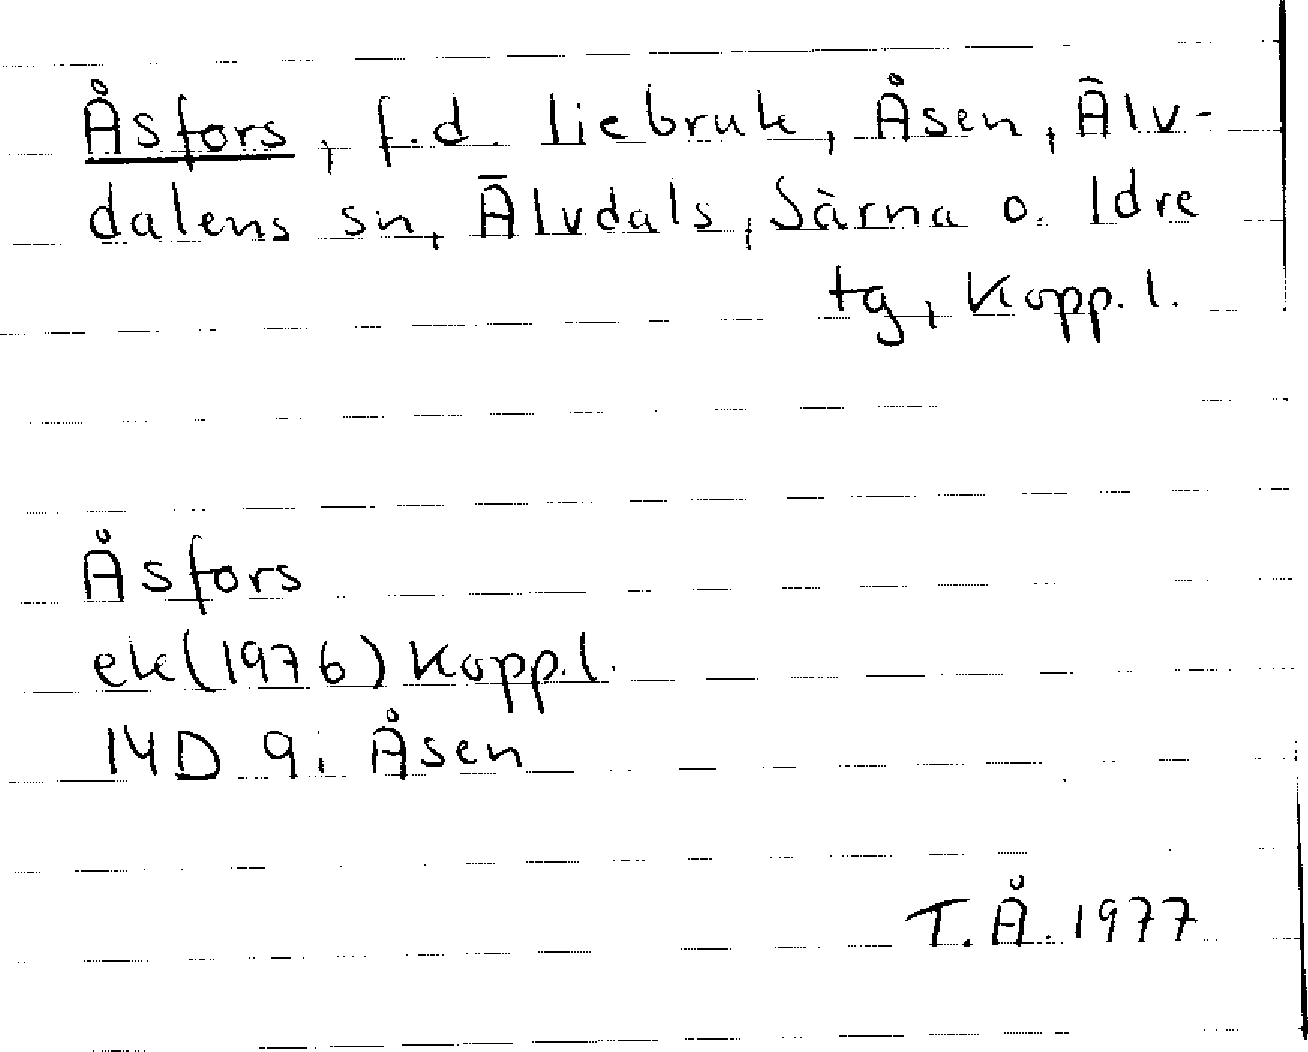 Åsfors, f.d. liebruk, Åsen, Älv-
dalens sn, Älvdals, Särna o. Idre
tg, Kopp. l.
Åsfors
ek (1976) Kopp.l.
14D 9i Åsen
T.Å. 1977